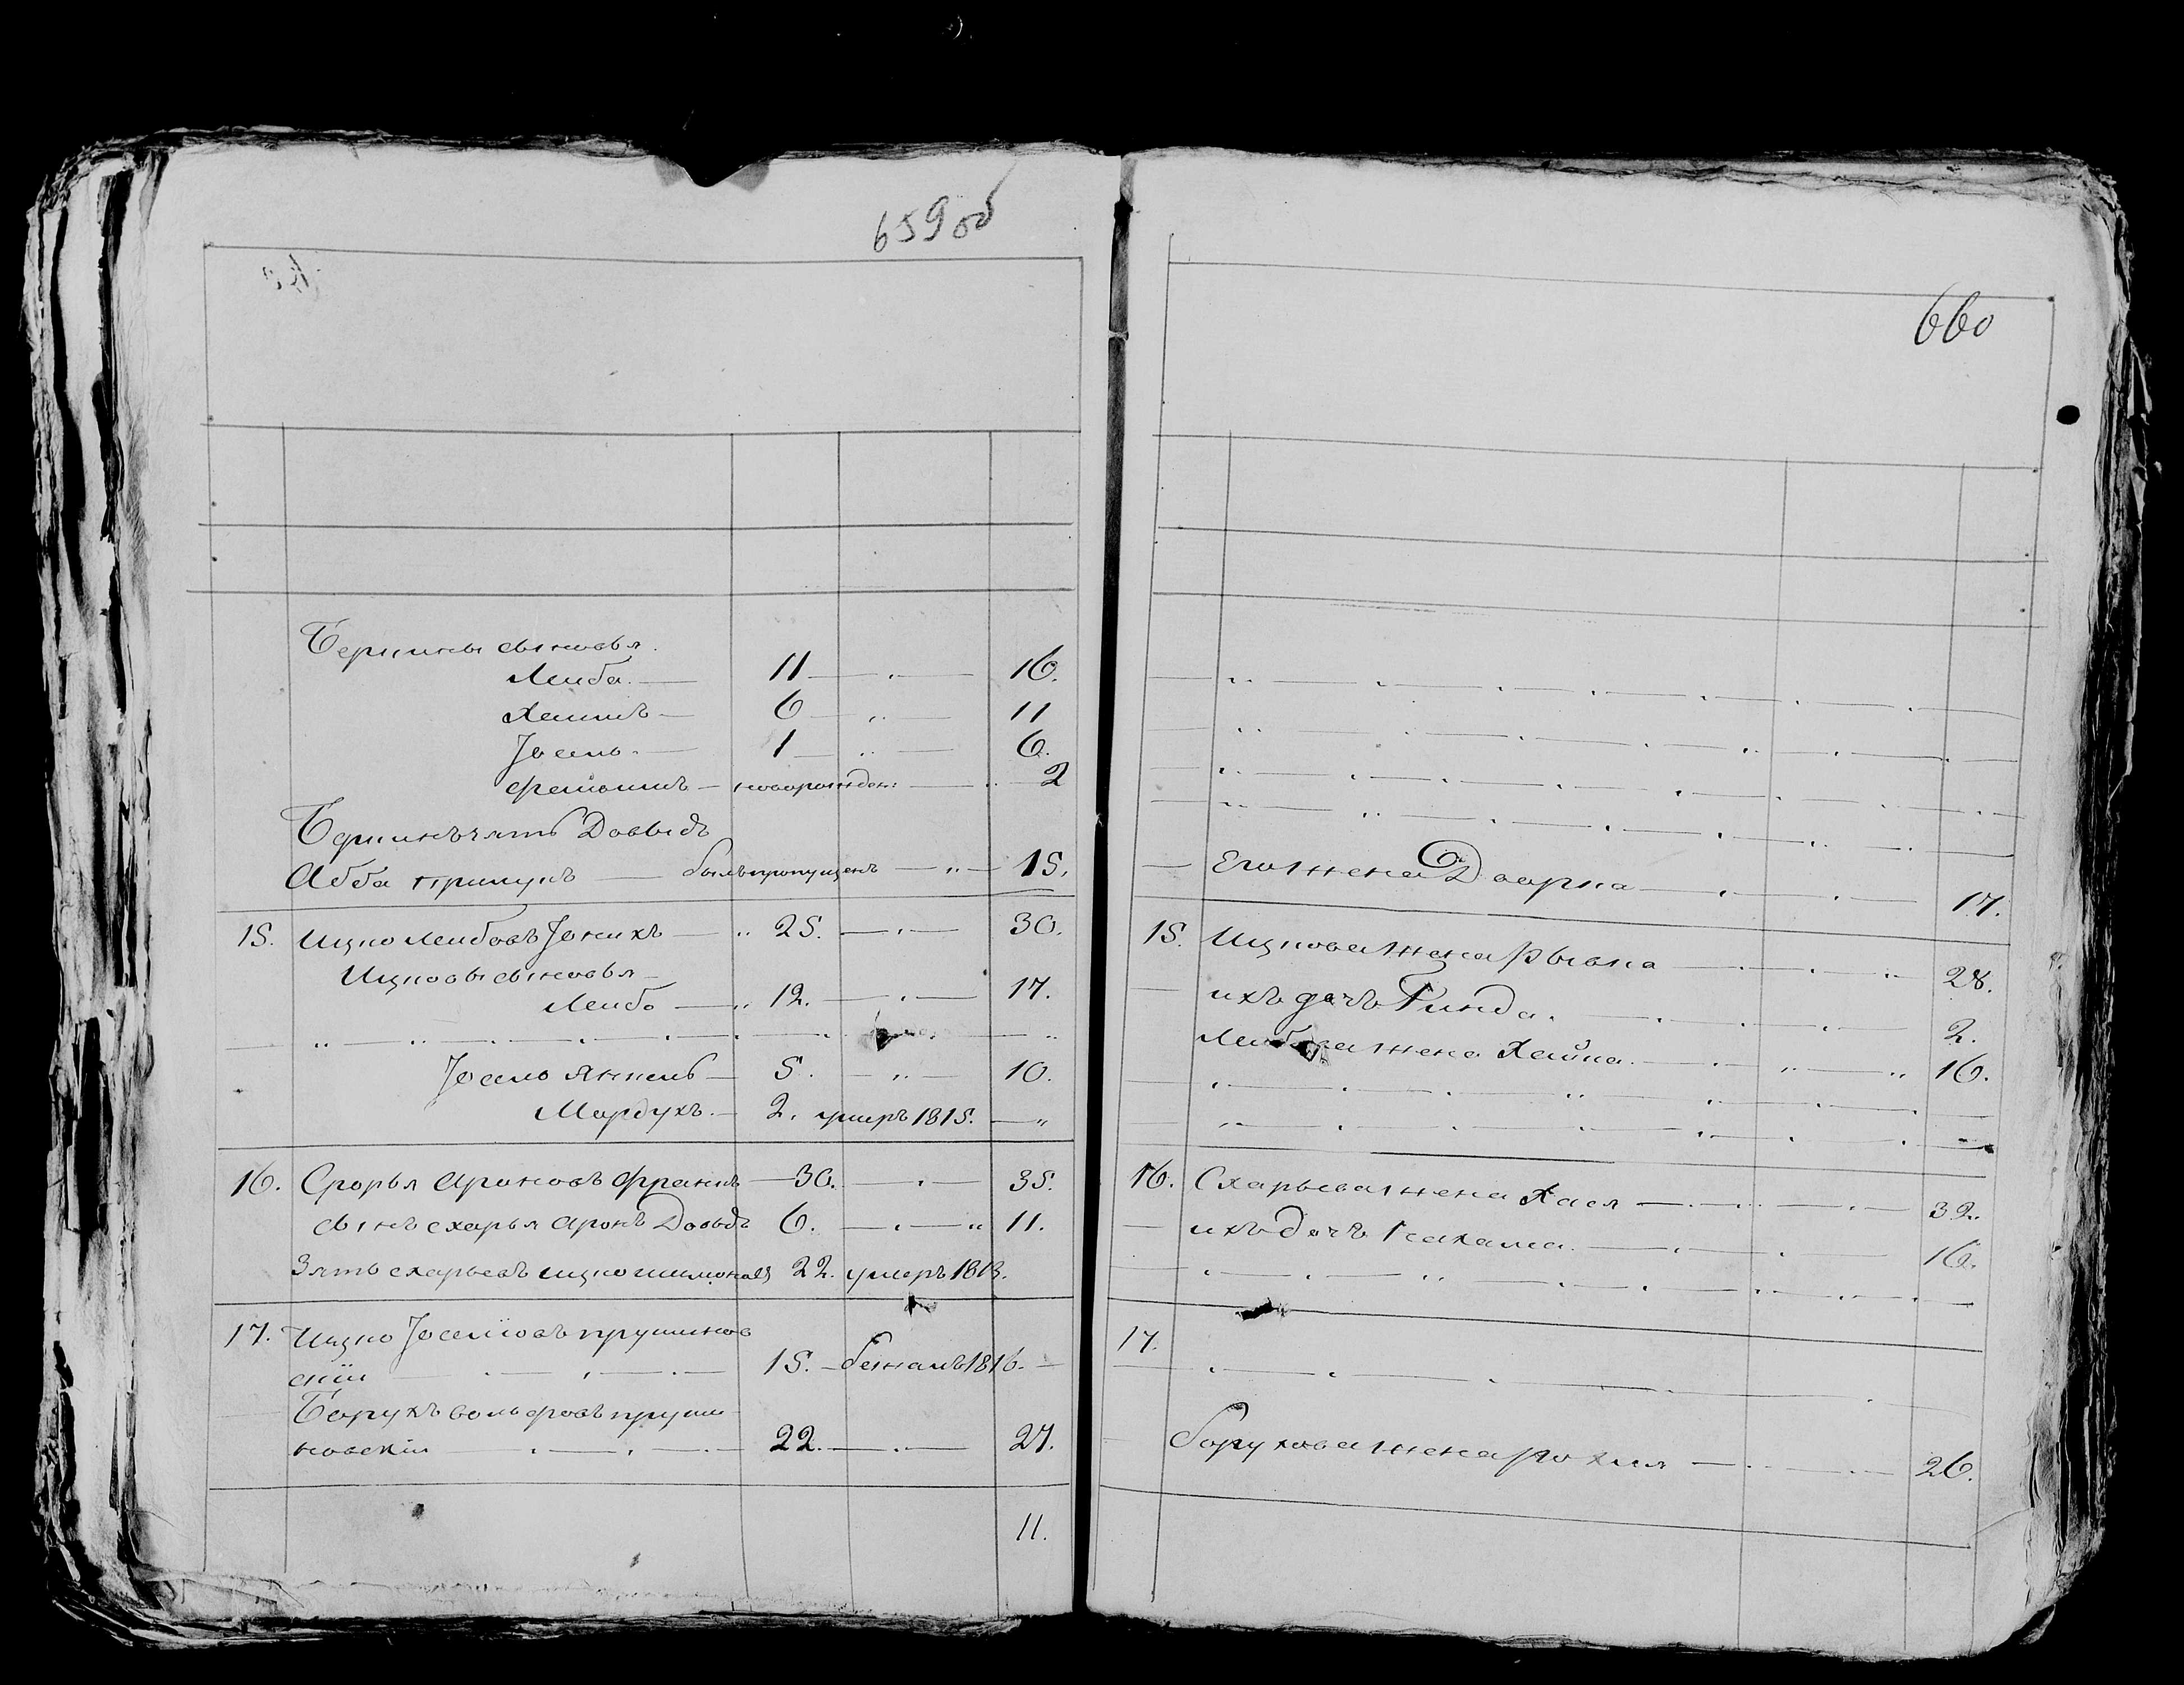 659 об
Беркины сыновья.
Лейба. — 11 — „ — 16.
Хаимъ — 6 — „ — 11
Іосель. — 1 — „ — 6.
новорожден: — „ 2
Беркинъ зять Довыдъ
Абба — былъ пропущенъ — „ — 15.
15. Ицко Лейбовъ — „ 25. — „ — 30.
Ицковы сыновья —
Лейба — „ 12. — „ — 17.
Іосель Янкель — 5. — „ — 10.
Мордухъ. — 2. умеръ 1815. — „
16. Ароновъ Франкъ — 30. — „ — 35.
сынъ схарья Аронъ Довыдъ 6. — „ — „ 11.
Зять схарьевъ ицко шимоновъ 22. умеръ 1813.
17. Ицко Іоселіовъ прушинов
скій — 15. — бежалъ 1816. —
Борухъ вольфовъ пруши
новскій — 22. — „ — 27.
11.
660
Его жена Дворка — 17.
15. Ицкова жена Рывка — 28.
ихъ дочь Гинда. — 2.
Лейбова жена Хайка. — 16.
16. Схарьева жена Хася — 32.
ихъ дочь — 16.
17.
борухова жена рохля — 26.